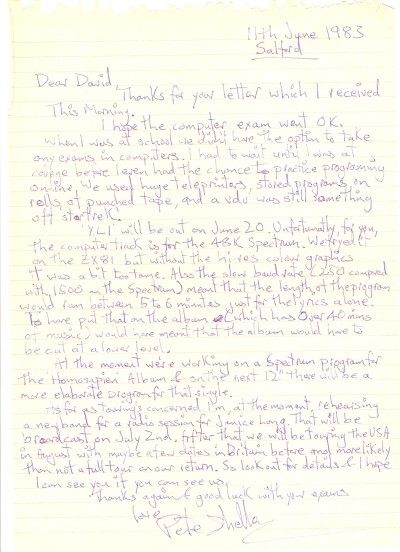 11th June 1983
Salford
Dear David,
Thanks for your letter which I received
This Morning.
I hope the computer exam went OK.
When I was at school we didn't have the option to take
any exams in computers. I had to wait until I was at
college before I even had the chance to practice programming
online. We used huge teleprinters, stored programs on
rolls of punched tape, and a vdu was still something
off startrek.
'XL1' will be out on June 20. Unfortunatly, for you,
the computer track is for the 48K Spectrum. We tryed it
on the ZX81 but without the hi res colour graphics
it was a bit too tame. Also the slow baud rate (250 compared
with 1500 on the Spectrum) meant that the length of the program
would run between 5 to 6 minutes just for the lyrics alone.
To have put that on the album (which has over 40 mins
of music) would have meant that the album would have to
be cut at a lower level.
At the moment we're working on a Spectrum program for
the Homosapien Album & on the next 12" there will be a
more elaborate program for that single.
As for as touring's concerned I'm, at the moment, rehearsing
a new band for a radio session for Janice Long. That will be
broadcast on July 2nd. After that we will be touring the USA
in August with maybe a few dates in Britain before and more likely
than not a full tour on our return. So look out for details & I hope
I can see you if you can see us.
Thanks again & good luck with your exams
love
Pete Shelley